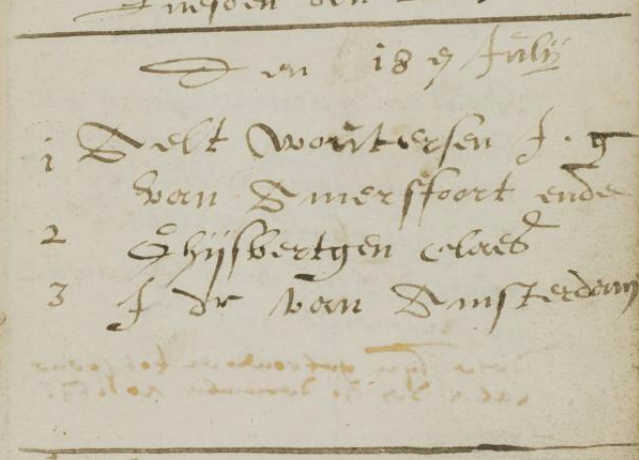 Den 18 en Julij
1 Aelt woutersen J. g
van Amersfoort ende
2 Ghijsbertgen claes
3 J dr van Amsterdam